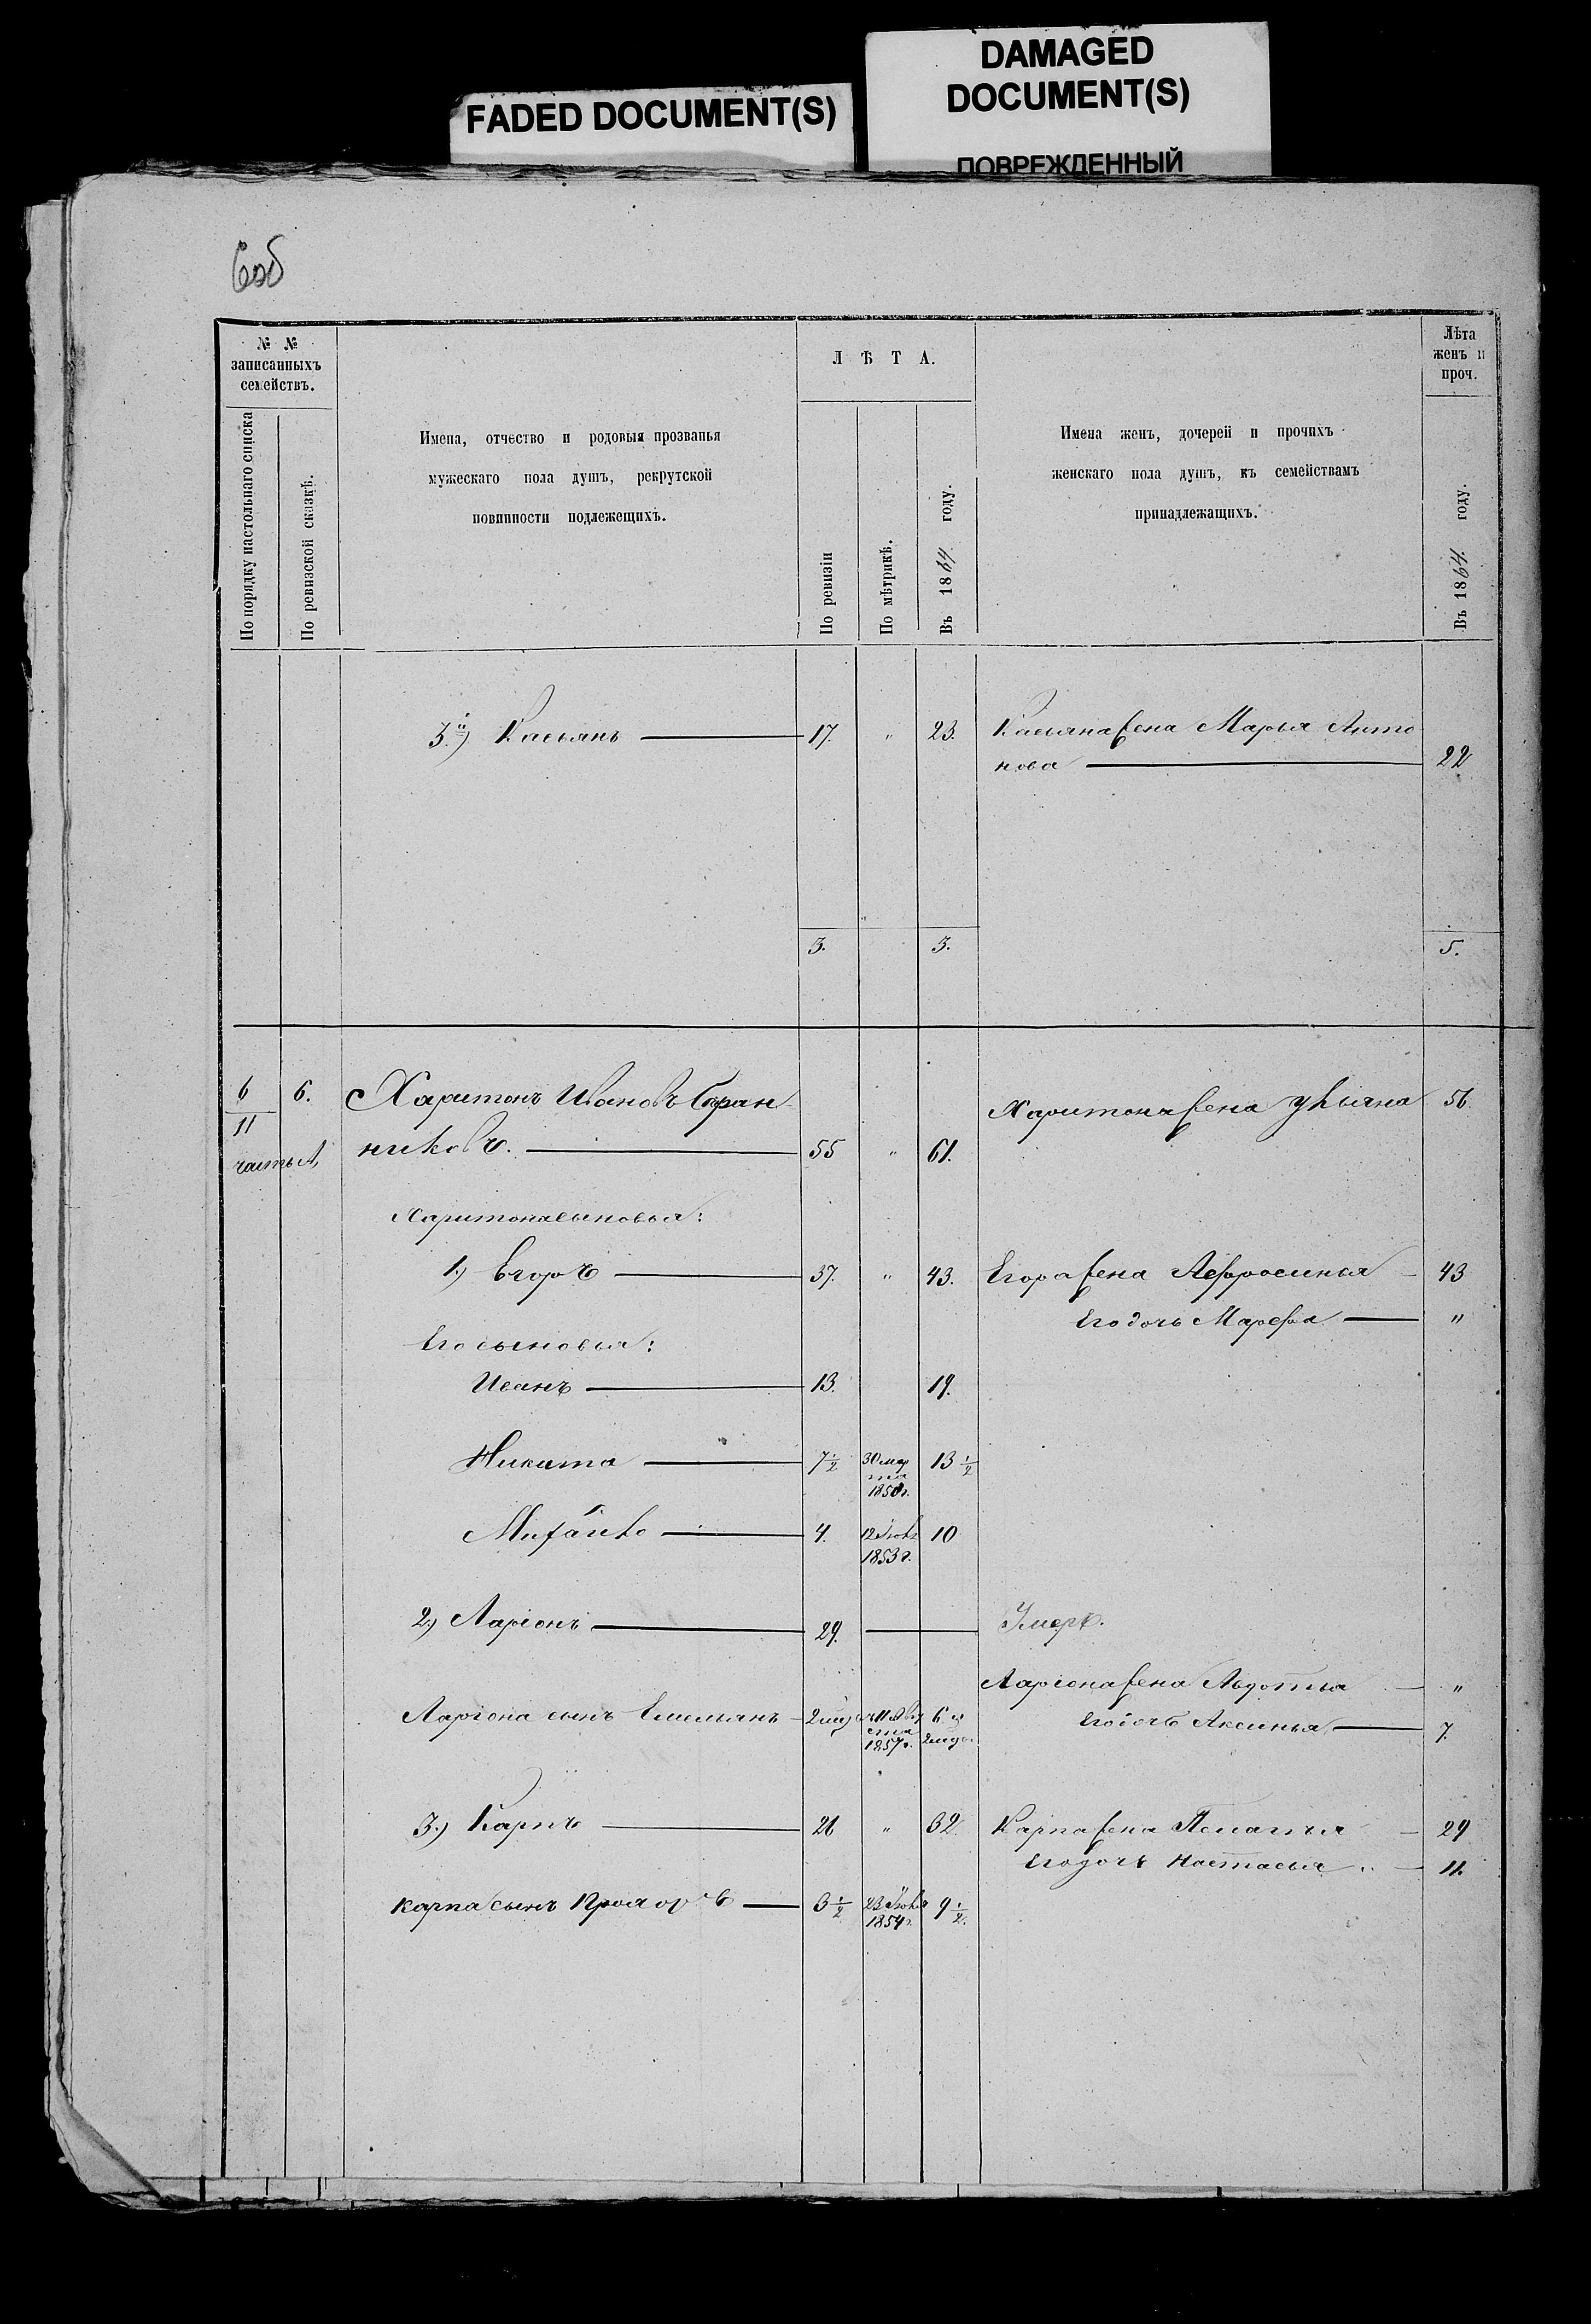 FADED DOCUMENT(S)
DAMAGED
DOCUMENT(S)
ПОВРЕЖДЕННЫЙ
6об
№ №
записанныхъ
семействъ.
По порядку настольнаго списка
По ревизской сказкѣ.
Имена, отчество и родовыя прозванья
мужескаго пола душъ, рекрутской
повинности подлежещихъ.
ЛѢТА.
По ревизіи
По мѣтрикѣ.
Въ 1864 году.
Имена женъ, дочерей и прочихъ
женскаго пола душъ, къ семействамъ
принадлежащихъ.
Лѣта
женъ и
проч.
Въ 1864 году.
3й) Касьянъ 17. " 23. Касьяна жена Марья Анто
нова 22
3. 3. 5.
6 6. Харитонъ Ивановъ Харитона жена Ульяна 56
11
часть А никовъ. 55 " 61.
Харитона сыновья:
1.) Егоръ 37. " 43. Егора жена Аефросинья 43
Его дочь Марефа "
Его сыновья:
Иванъ 13. 19.
Никита 7 1/2 30 мар
та
1850г. 13 1/2
Михайло 4. 12 Іюня
1853г. 10
2.) Ларіонъ 29. Умеръ.
Ларіона жена Авдотья "
Ларіона сынъ Емельянъ 11 Авгу
ста
1857г. 6 Его дочь Аксинья 7.
3.) Карпъ 26 " 32. Карпа жена Пелагья 29
Его дочь Настасья 11.
Карпа сынъ Прохоръ 3 1/2 23
1854г. 9 1/2.